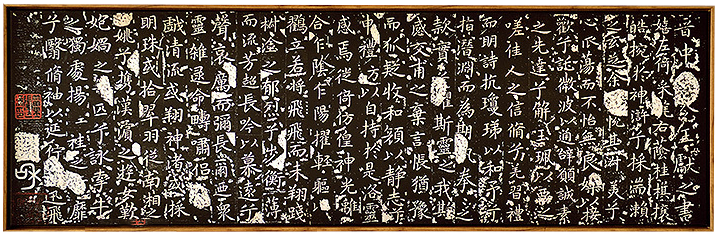 嬉左倚采旄右蔭桂旗攘
皓捥於神滸兮採湍瀨
之玄芝余情其淑美兮
心振蕩而不怡無良媒以接
歡兮託微波以通辭願誠素
之先達兮解玉珮而要之
嗟佳人之信脩兮羌習禮
而明詩抗瓊珶以和予兮
指潛淵而為期執拳之
款實兮斯靈之我欺
感交甫之棄言悵猶豫
而狐疑收和顏以靜志兮
申禮防以自持於是洛靈
感焉徙倚彷徨神光離
合乍陰乍陽擢輕軀
鶴立若將飛而未翔踐
椒塗之郁烈兮步衡薄
而流芳超長吟以慕遠兮
聲哀厲而彌長爾迺眾
靈雜遝命疇嘯侶
戲清流或翔神渚或採
明珠或拾翠羽從南湘之
姚兮攜漢濱之遊女歎
媧之匹兮詠牽牛
之獨處揚袿之靡
兮翳脩袖以延佇迅飛